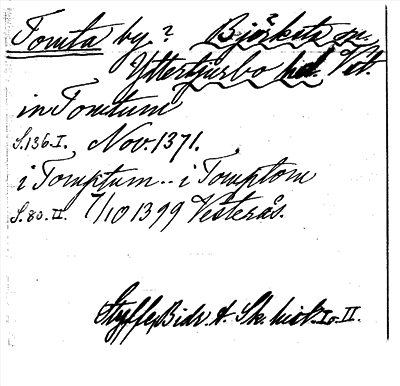 Tomta by? Björksta sn.
Yttertjurbo hd. Vstm.
in Tomtum
S. 136 I. Nov. 1371.
i Tomptum .. i Tomptom
S. 80. II. 7/10 1399 Vesterås.
Styffe, Bidr. t. Sk. hist. I o. II.